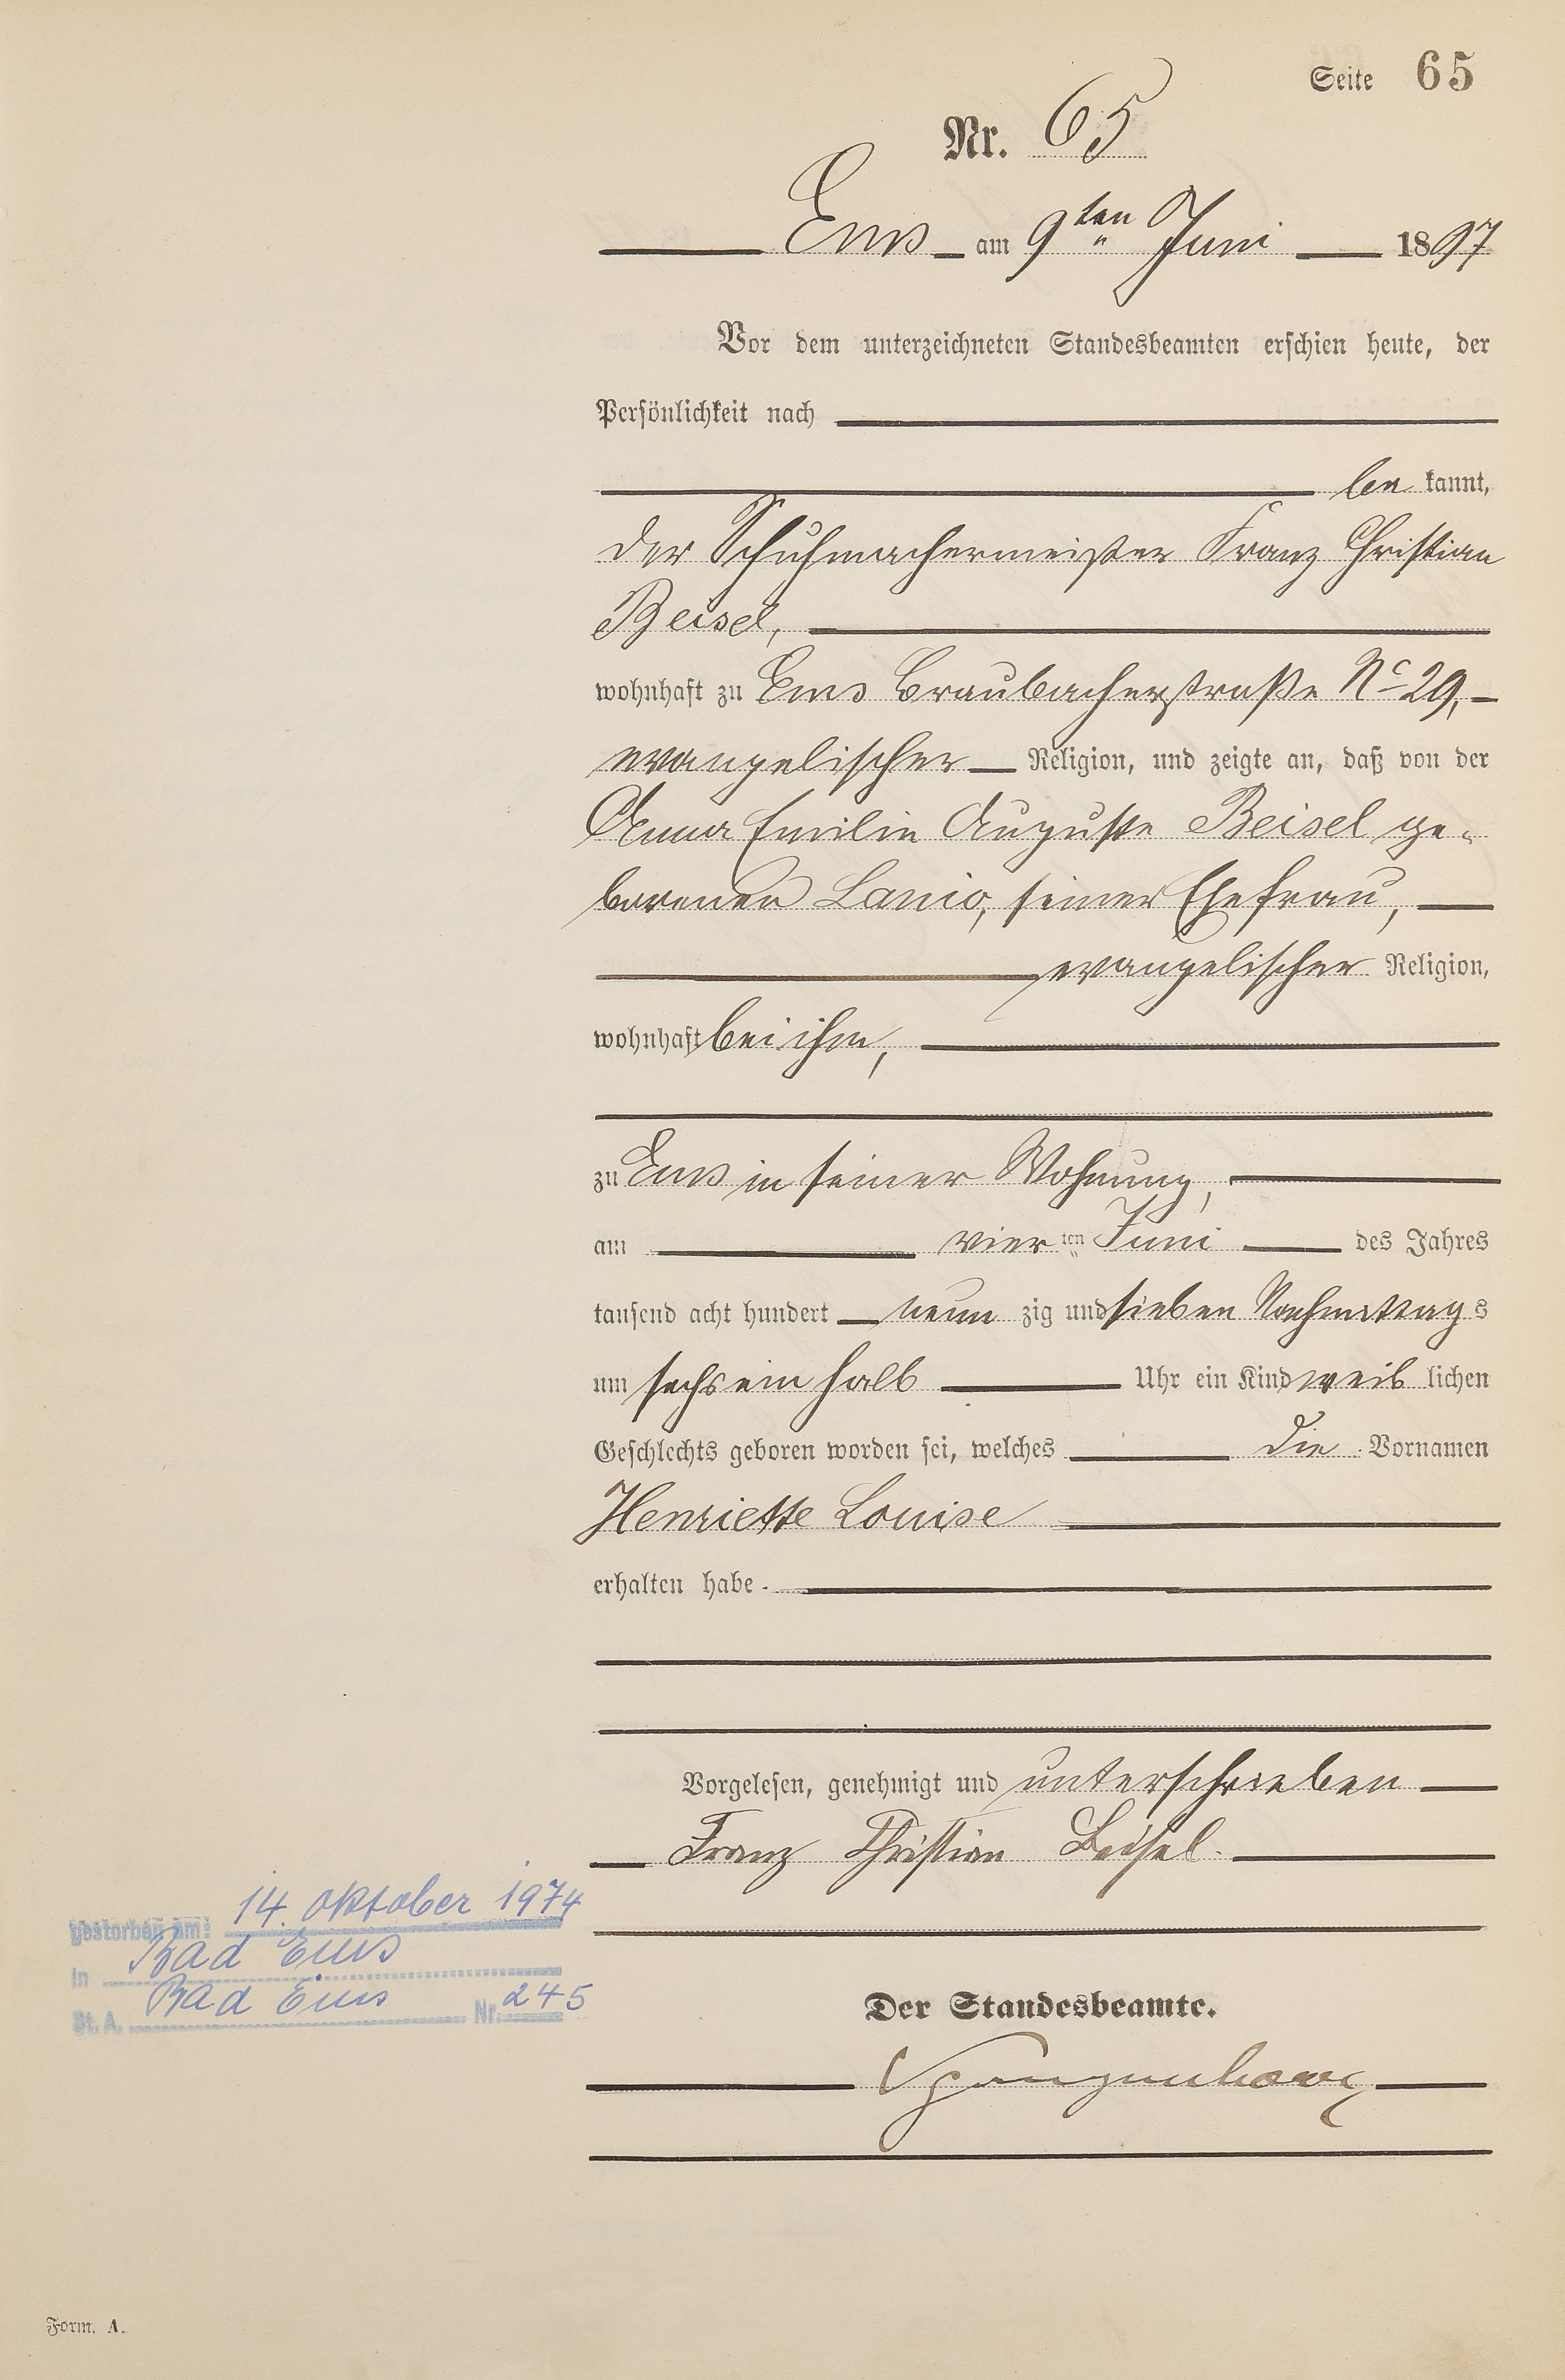 Seite 65
Nr. 65
Ems am 9ten Juni 1897
Vor dem unterzeichneten Standesbeamten erschien heute, der
Persönlichkeit nach
be kannt,
der Schuhmachermeister Franz Christian
Beisel,
wohnhaft zu Ems Braubacherstraße No 29,
evangelischer Religion, und zeigte an, daß von der
Anna Emilie Auguste Beisel ge-
borenen Lanio, seiner Ehefrau,
evangelischer Religion,
wohnhaft bei ihm,
zu Ems in seiner Wohnung,
am vier ten Juni des Jahres
tausend acht hundert neun zig und sieben Nachmittags
um sechs ein halb Uhr ein Kind weib lichen
Geschlechts geboren worden sei, welches die Vornamen
Henriette Louise
erhalten habe.
Vorgelesen, genehmigt und unterschrieben
Franz Christian Beisel.
gestorben am: 14. Oktober 1974
in Bad Ems
St. A. Bad Ems Nr. 245
Der Standesbeamte.
Form. A.